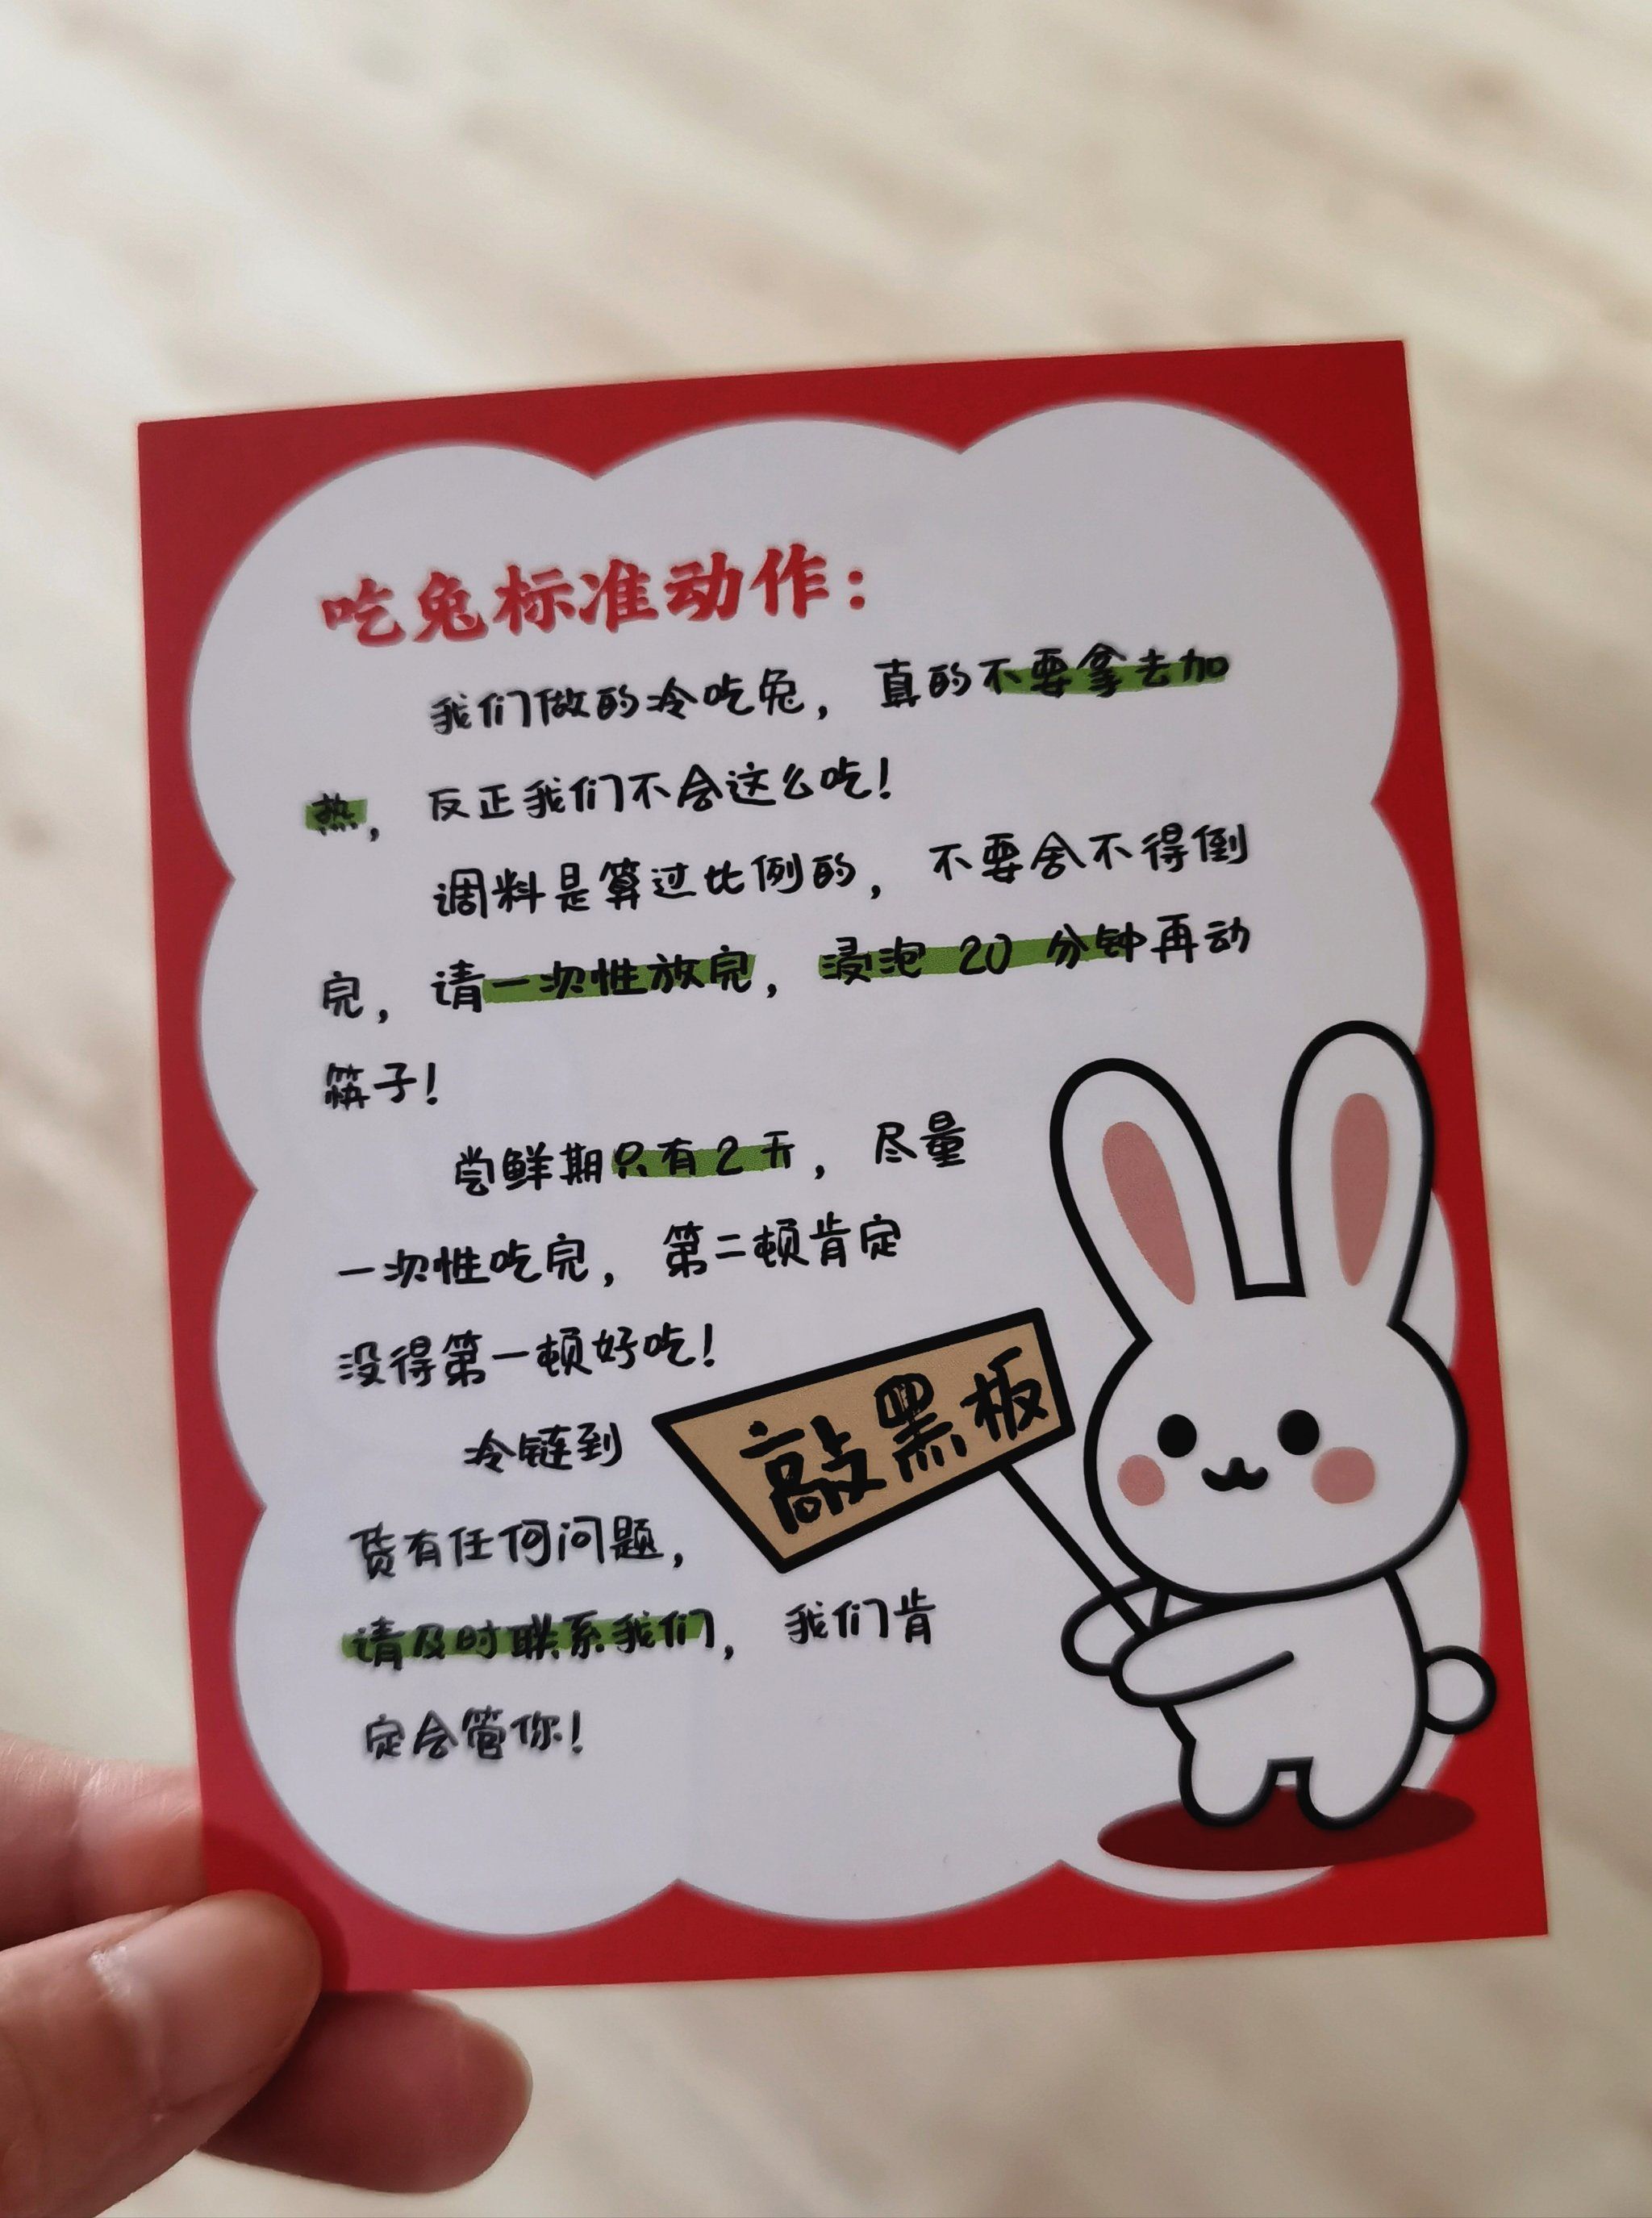 吃兔标准动作：
我们做的冷吃兔，真的不要拿去加
热，反正我们不会这么吃！
调料是算过比例的，不要舍不得倒
完，请一次性放完，浸泡 20 分钟再动
筷子！
尝鲜期只有2天，尽量
一次性吃完，第二顿肯定
没得第一顿好吃！
冷链到
货有任何问题，
请及时联系我们，我们肯
定会管你！
敲黑板